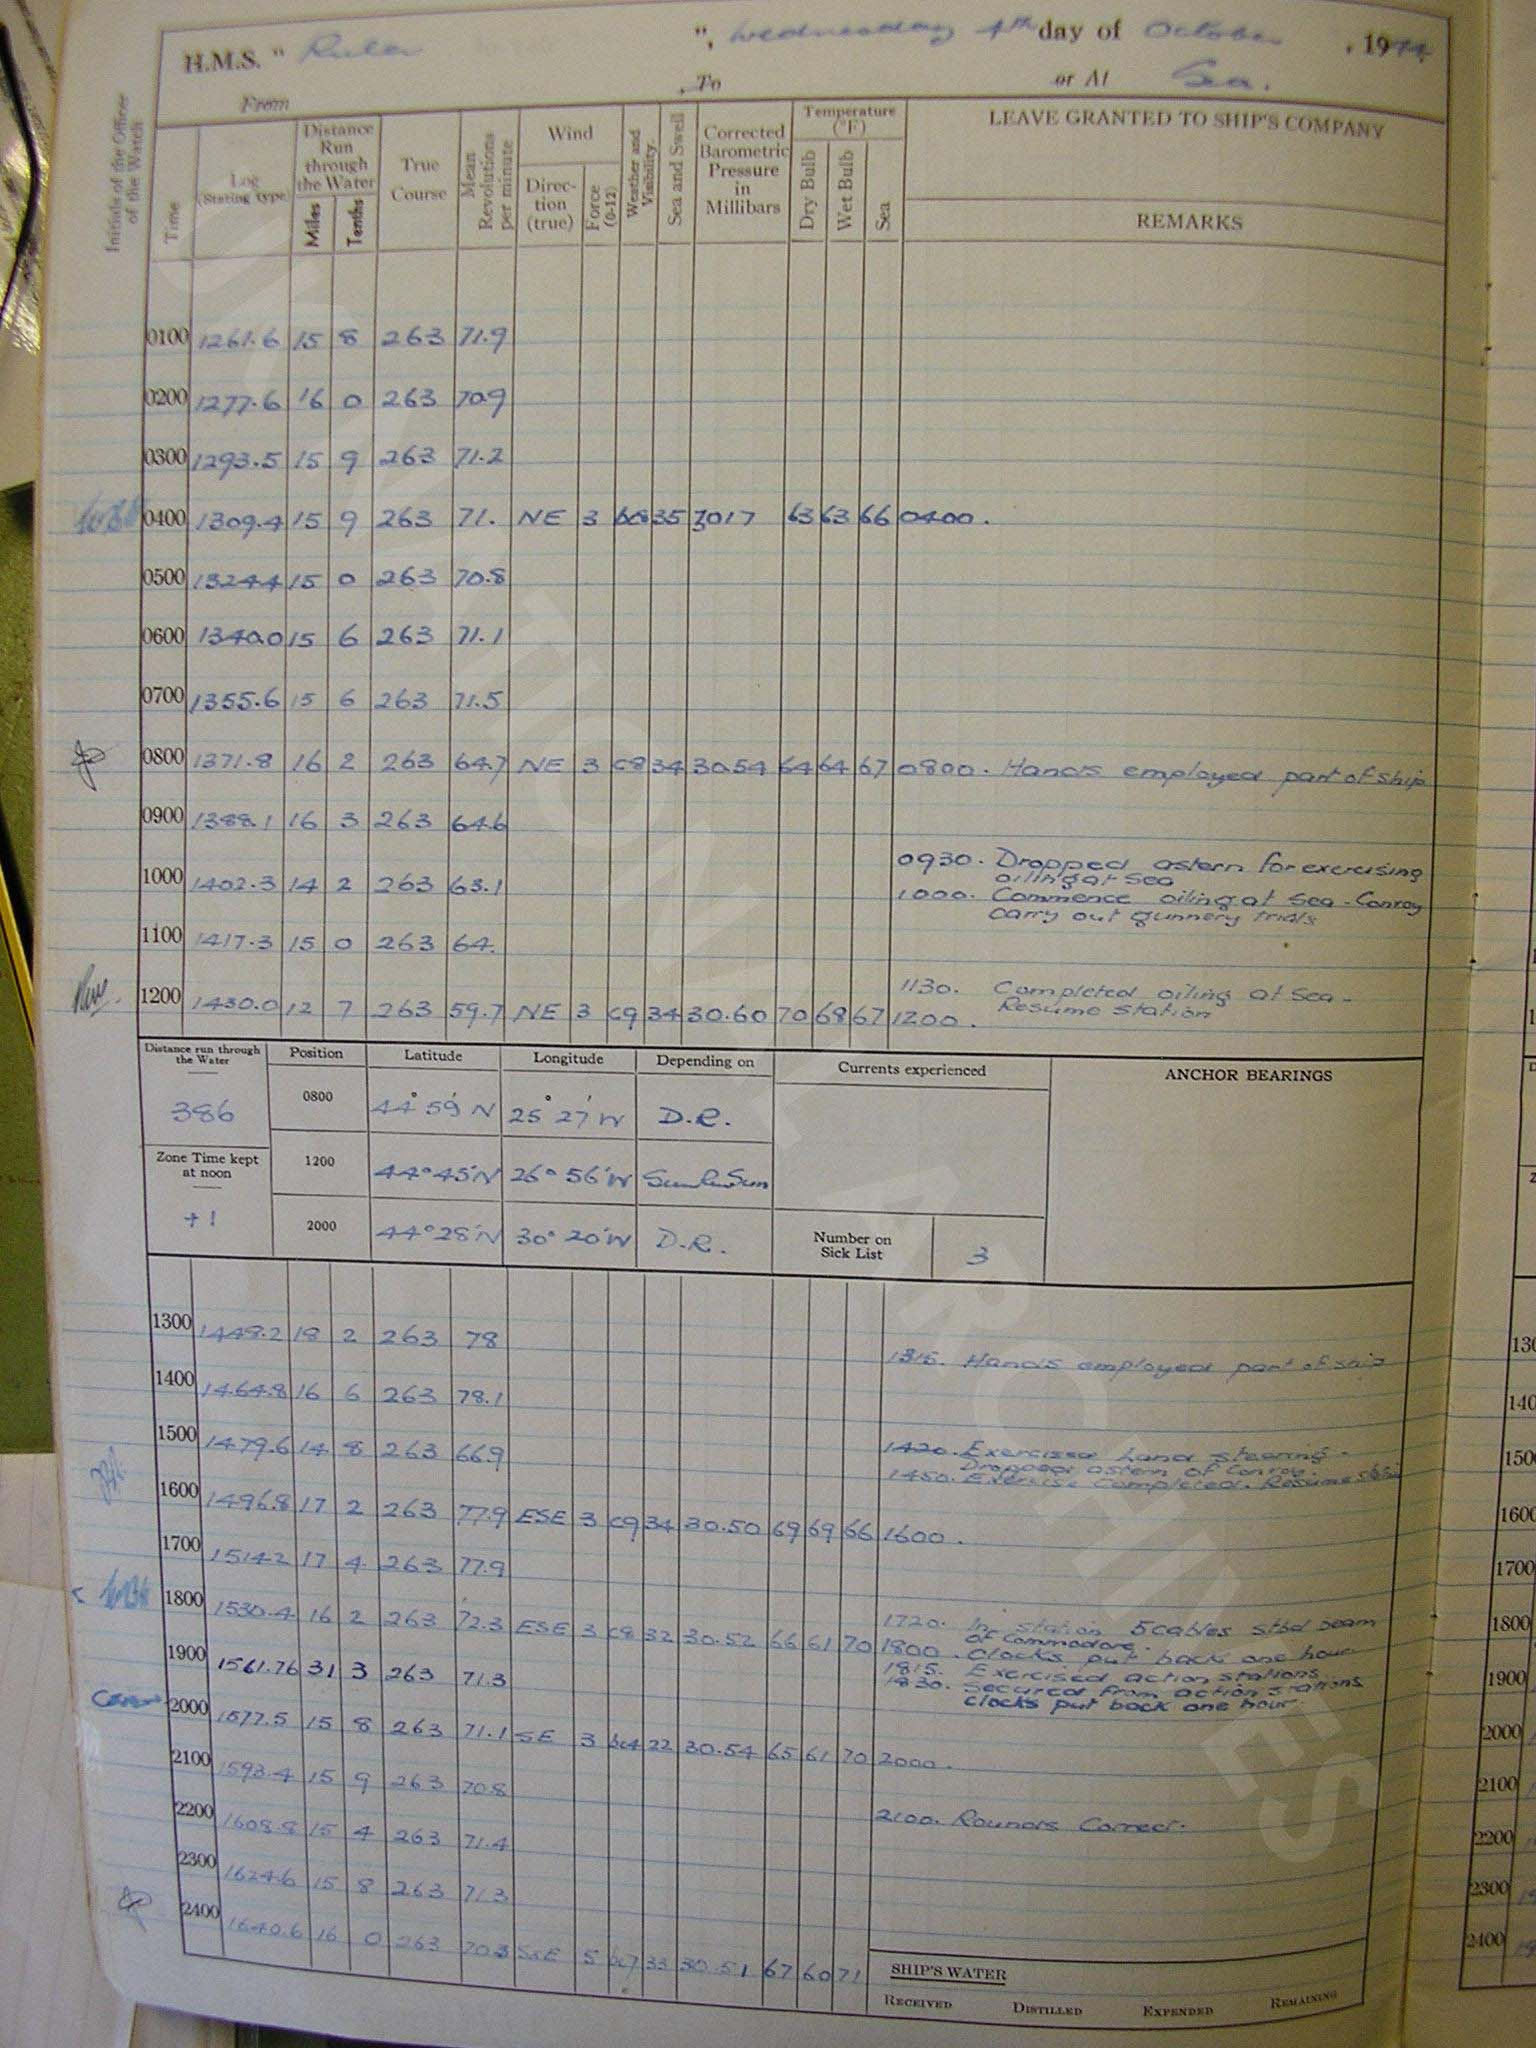 H.M.S. " Ruler ", Wednesday 4th day of October, 1944
From To or At Sea.
Initials of the Officer of the Watch
Time
Log (Stating type)
Distance Run through the Water
Miles Tenths
True Course
Mean Revolutions per minute
Wind
Direction (true)
Force (0-12)
Weather and Visibility
Sea and Swell
Corrected Barometric Pressure in Millibars
Temperature (°F)
Dry Bulb Wet Bulb Sea
LEAVE GRANTED TO SHIP'S COMPANY
REMARKS
0100 1261.6 15 8 263 71.9
0200 1277.6 16 0 263 70.9
0300 1293.5 15 9 263 71.2
0400 1309.4 15 9 263 71. NE 3 35 3017 63 63 66 0400.
0500 1324.4 15 0 263 70.8
0600 1340.0 15 6 263 71.1
0700 1355.6 15 6 263 71.5
0800 1371.8 16 2 263 64.7 NE 3 c8 34 30.54 64 64 67 0800. Hands employed part of ship
0900 1388.1 16 3 263 64.6
0930. Dropped astern for exercising
oiling at Sea
1000 1402.3 14 2 263 63.1 1000. Commence oiling at Sea - Convoy
carry out gunnery trials
1100 1417.3 15 0 263 64.
1130. Completed oiling at Sea -
Resume Station
1200 1430.0 12 7 263 59.7 NE 3 c9 34 30.60 70 68 67 1200.
Distance run through the Water
386
Zone Time kept at noon
+1
Position Latitude Longitude Depending on
0800 44° 59' N 25° 27' W D.R.
1200 44° 45' N 26° 56' W Sun Run Sun
2000 44° 28' N 30° 20' W D.R.
Currents experienced
Number on Sick List 3
ANCHOR BEARINGS
1300 1448.2 18 2 263 78
1315. Hands employed part of ship
1400 1464.8 16 6 263 78.1
1420. Exercised hand steering -
Dropped astern of Convoy.
1500 1479.6 14 8 263 66.9
1450. Exercise Completed. Resume stn
1600 1496.8 17 2 263 77.9 ESE 3 c9 34 30.50 69 69 66 1600.
1700 1514.2 17 4 263 77.9
1720. In station 5 cables stbd beam
of Commodore.
1800 1530.4 16 2 263 72.3 ESE 3 c8 32 30.52 66 61 70 1800. Clocks put back one hour
1815. Exercised action stations
1830. Secured from action stations
clocks put back one hour.
1900 1561.76 31 3 263 71.3
2000 1577.5 15 8 263 71.1 SE 3 22 30.54 65 61 70 2000.
2100 1593.4 15 9 263 70.8
2100. Rounds Correct.
2200 1608.8 15 4 263 71.4
2300 1624.6 15 8 263 71.3
2400 1640.6 16 0 263 70.3 SxE 5 bc7 33 30.51 67 60 71
SHIP'S WATER
RECEIVED DISTILLED EXPENDED REMAINING
UK NATIONAL ARCHIVES